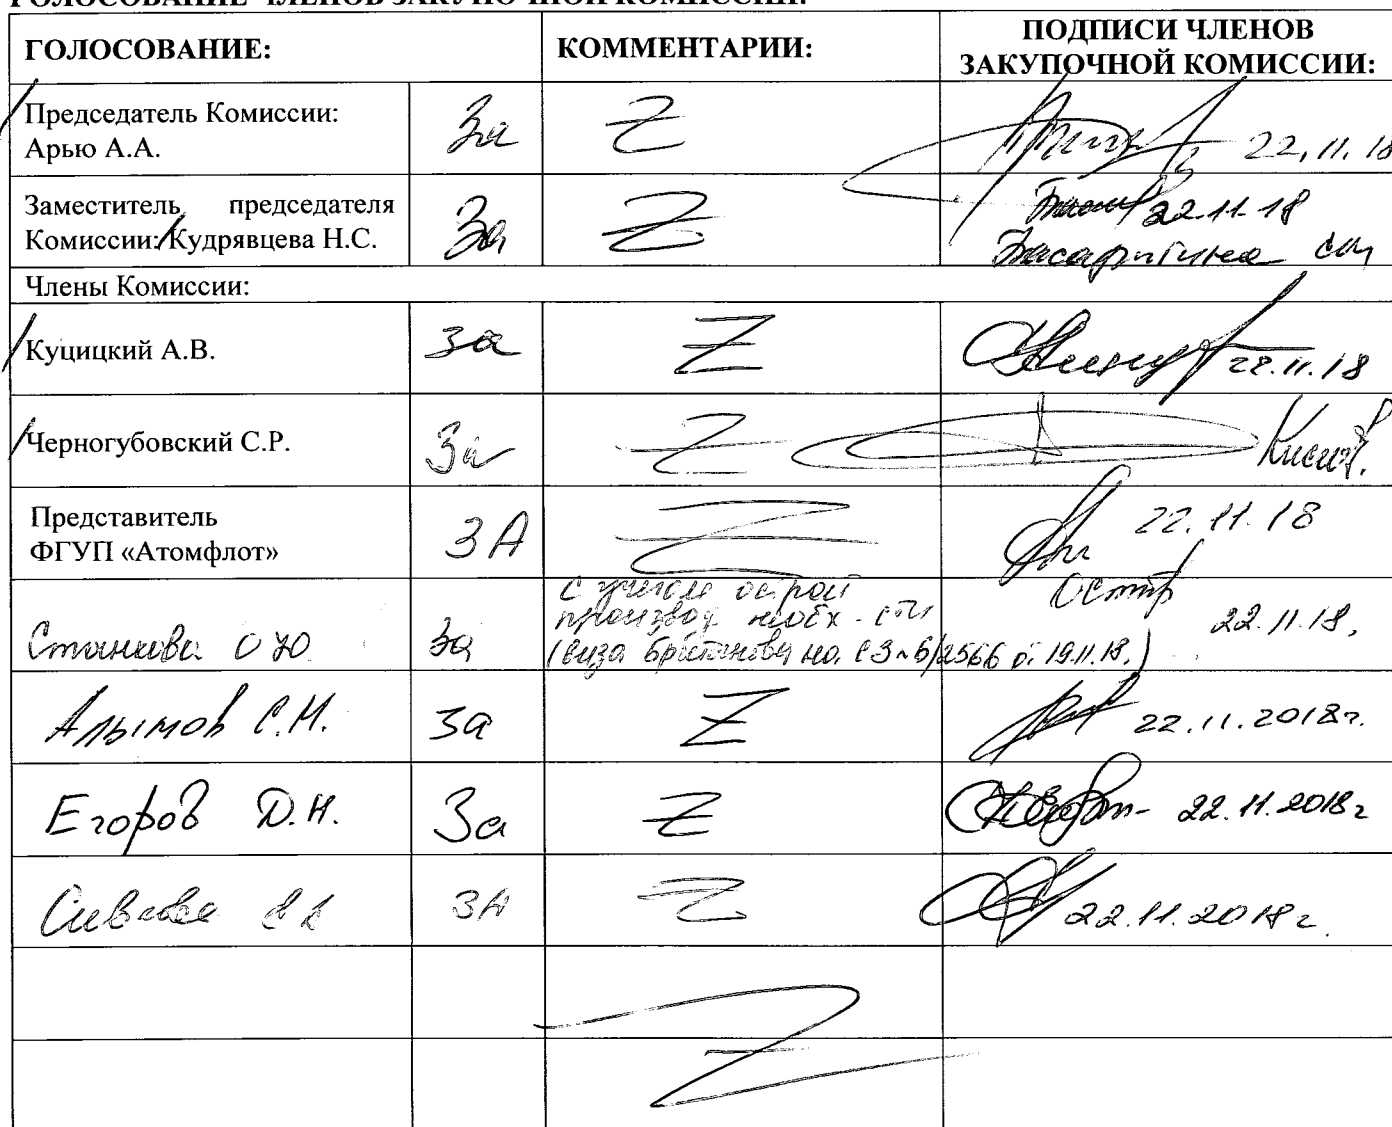 ГОЛОСОВАНИЕ ЧЛЕНОВ ЗАКУПОЧНОЙ КОМИССИИ:
ГОЛОСОВАНИЕ: КОММЕНТАРИИ: ПОДПИСИ ЧЛЕНОВ
ЗАКУПОЧНОЙ КОМИССИИ:
Председатель Комиссии:
Арью А.А. За Z 22.11.18
Заместитель председателя
Комиссии: Кудрявцева Н.С. За Z 22.11.18
Члены Комиссии:
Куцицкий А.В. За Z 22.11.18
Черногубовский С.Р. За Z
Представитель
ФГУП «Атомфлот» ЗА Z 22.11.18
с учетом острой
производ. необх-сти 22.11.18.
Станкова О Ю За (виза на СЗ № 6/2566 от 19.11.18.)
Алымов С.М. За Z 22.11.2018г.
Егоров Д.Н. За Z 22.11.2018г
ЗА Z 22.11.2018г.
Z